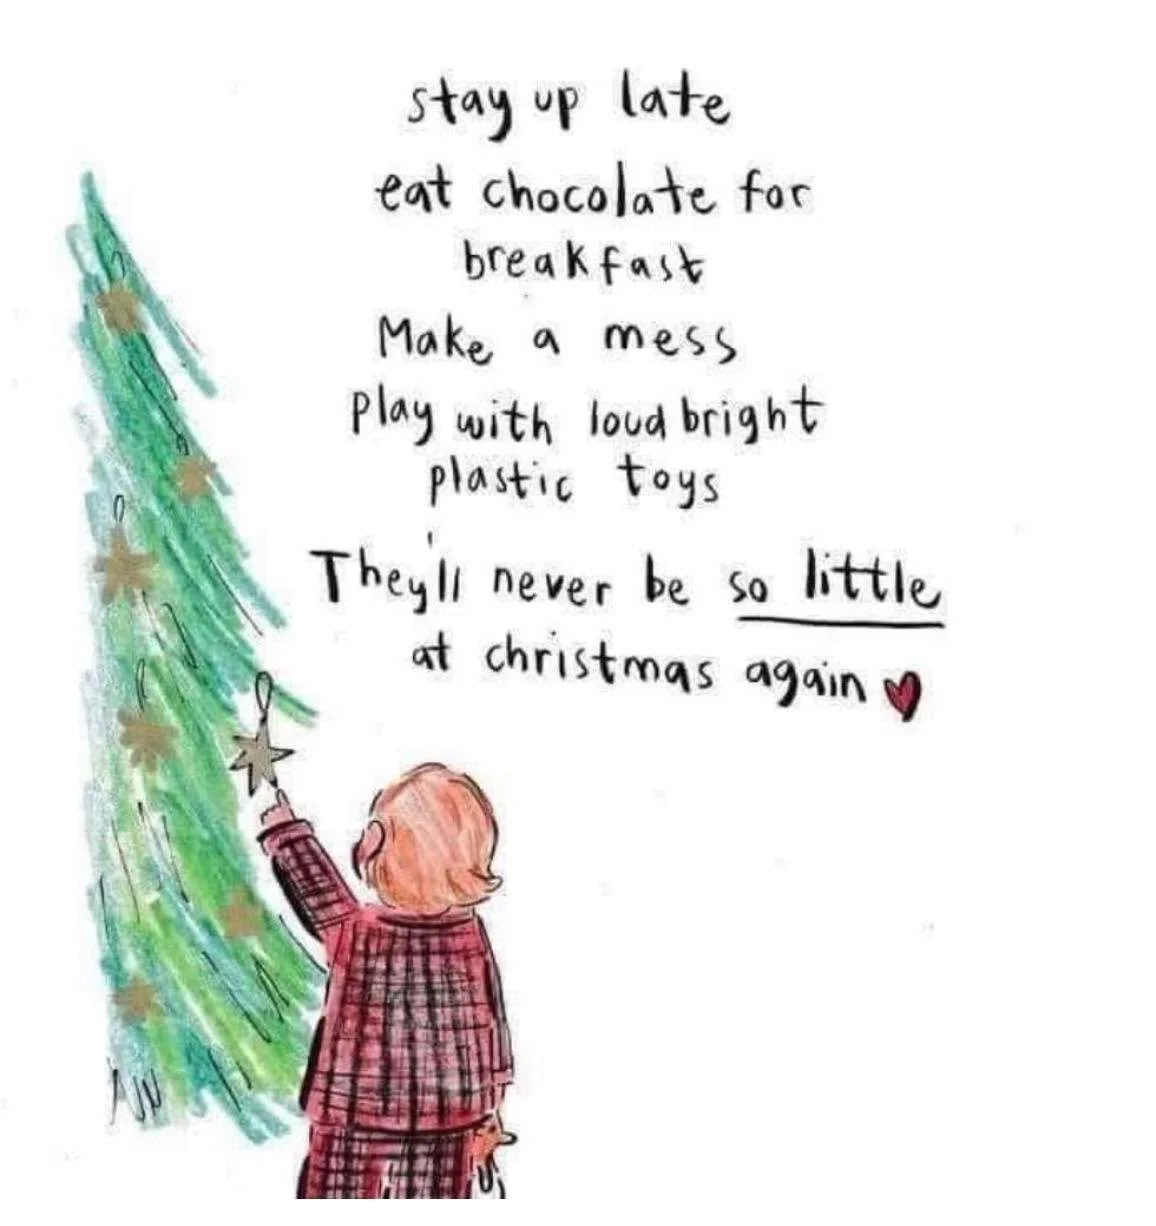 stay up late
eat chocolate for
breakfast
Make a mess
Play with loud bright
plastic toys
They'll never be so little
at christmas again